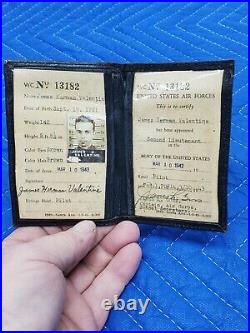 WC Nº 13182
Name James Herman Valentine
Date of Birth Sept. 18, 1921
Weight 142
Height
Color Eyes Brown
Color Hair Brown
Date MAR 10 1943
Signature:
James Herman Valentine
Ratings Held, Pilot
JAMES H
VALENTINE
WC Nº 13182
UNITED STATES AIR FORCES
This is to certify
James Herman Valentine
has been appointed
Second Lieutenant
in the
ARMY OF THE UNITED STATES
MAR 10 1943
Pilot
Air Corps,